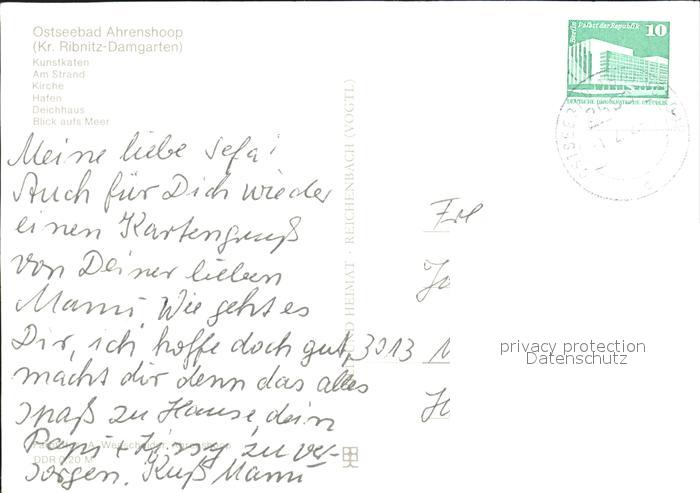 Ostseebad Ahrenshoop
(Kr. Ribnitz-Damgarten)
Kunstkaten
Am Strand
Kirche
Hafen
Deichhaus
Blick aufs Meer
Meine liebe Sefa!
Auch für Dich wieder
einen Kartengruß
von Deiner lieben
Mami. Wie geht es
Dir, ich hoffe doch gut,
macht dir denn das alles
Spaß zu Hause, dein
Papi + zu ver-
sorgen. Kuß Mami
DDR 0,20 M
UND HEIMAT · REICHENBACH (VOGTL)
Berlin Palast der Republik
10
DEUTSCHE DEMOKRATISCHE REPUBLIK
3013
privacy protection
Datenschutz